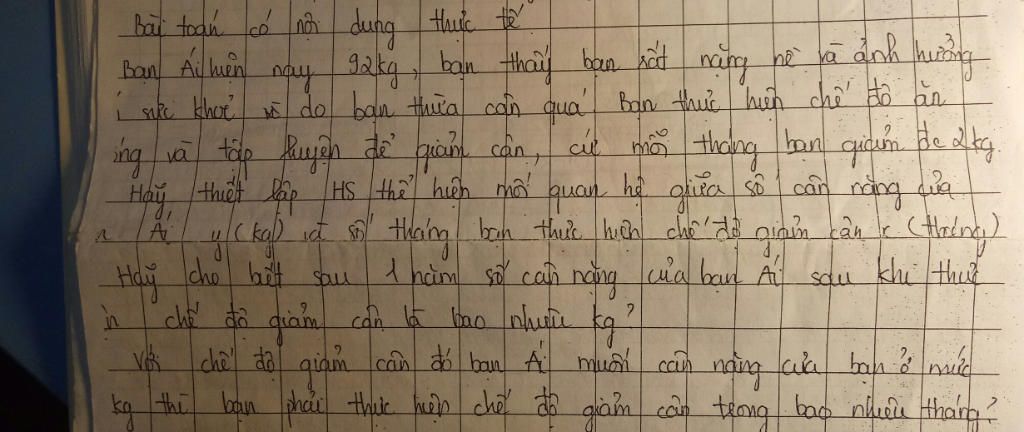 Bài toán có nội dung thực tế
Bạn Ái hiện nay 92kg, bạn thấy bạn rất nặng nề và ảnh hưởng
sức khoẻ vì do bạn thừa cân quá Bạn thực hiện chế độ ăn
ing và tập luyện để giảm cân, cứ mỗi tháng bạn giảm đc 2kg.
Hãy thiết lập HS thể hiện mối quan hệ giữa số cân nặng của
Ái y (kg) và số tháng bạn thực hiện chế độ giảm cân x (tháng)
Hãy cho biết sau 1 năm số cân nặng của bạn Ái sau khi thực
chế độ giảm cân là bao nhiêu kg?
Với chế độ giảm cân đó bạn Ái muốn cân nặng của bạn ở mức
kg thì bạn phải thực hiện chế độ giảm cân trong bao nhiêu tháng?